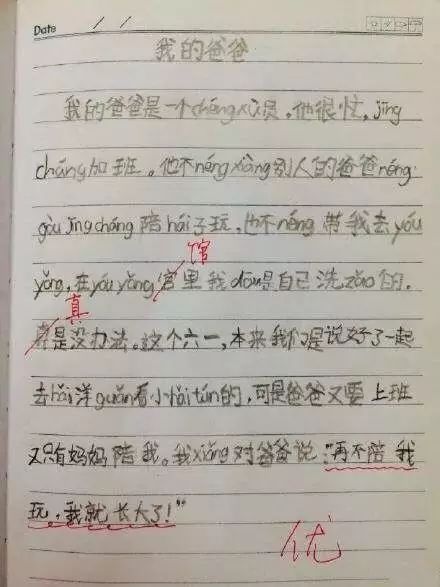 Date / /
我的爸爸
我的爸爸是一个chéngxù员，他很忙，jīng
cháng加班。他不néngxiàng别人的爸爸néng
gòu jīngcháng陪hái子玩，也不néng带我去yóu
馆
yǒng，在yóuyǒng官里我dōu是自己洗zǎo的。
真
是没办法。这个六一，本来我们是说好了一起
去hǎi洋guǎn看小hǎitún的，可是爸爸又要上班
又只有妈妈陪我。我xiǎng对爸爸说："再不陪我
玩，我就长大了！"
优